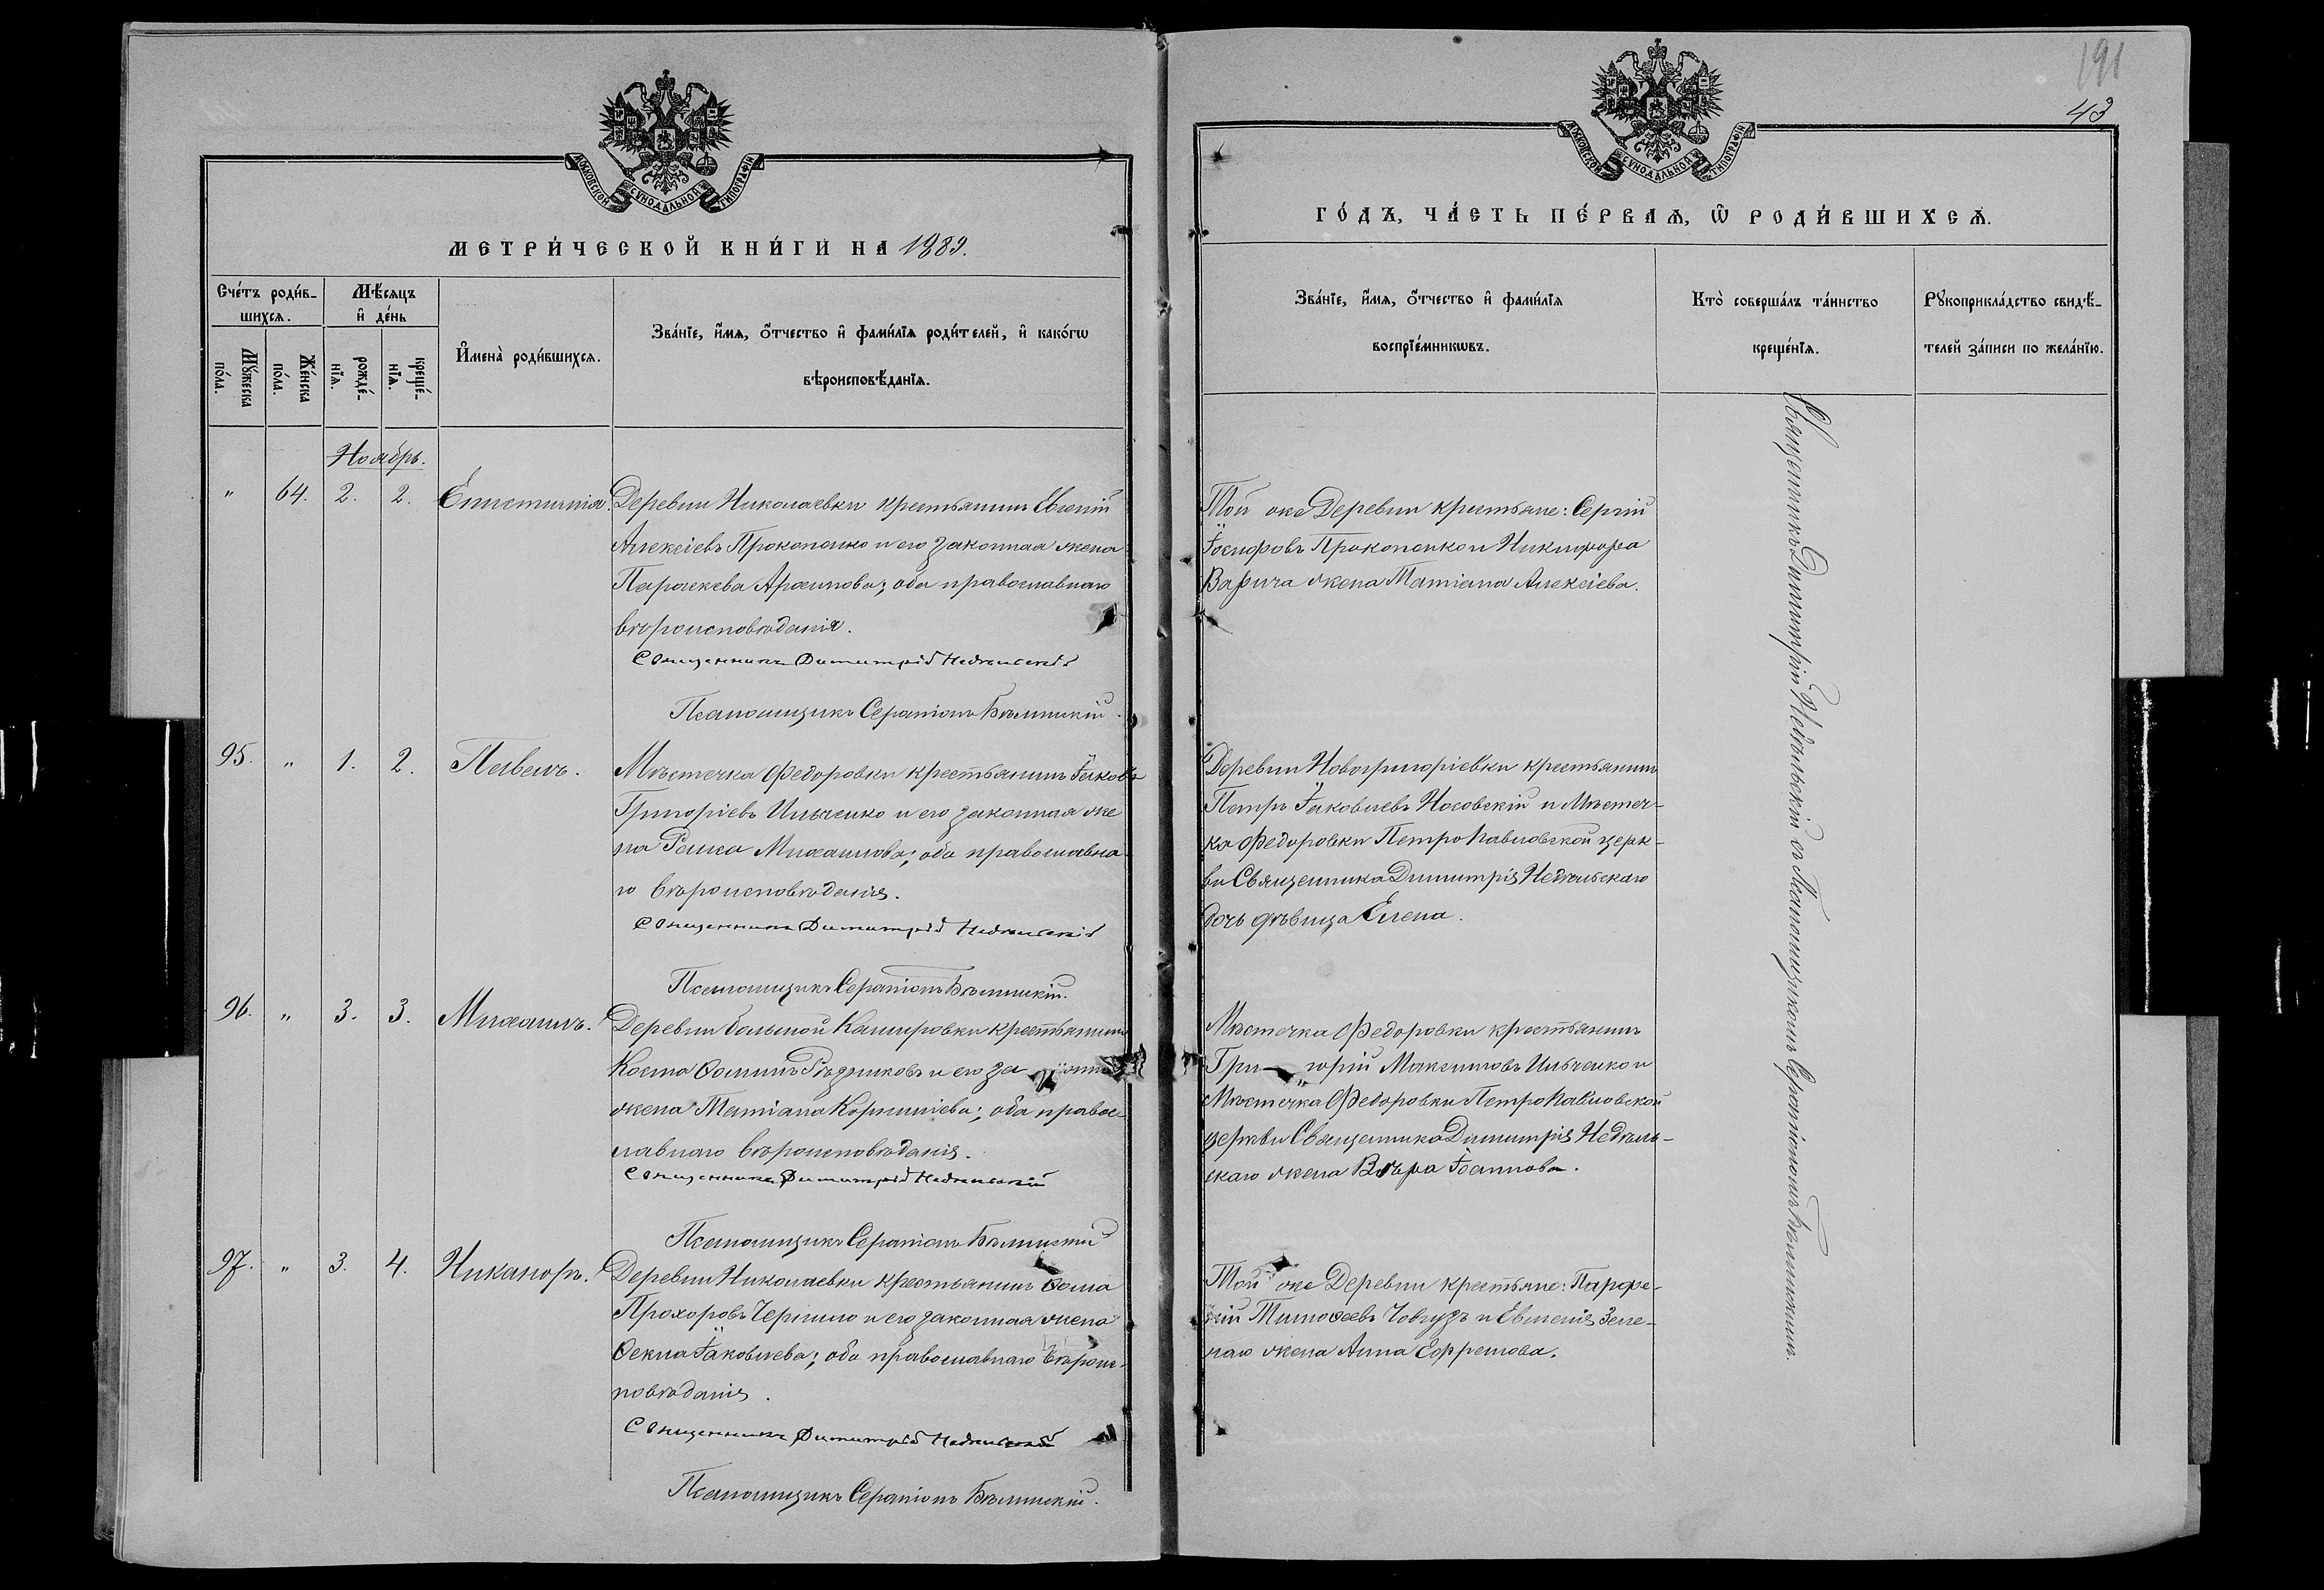 191
43
МОСКОВСКОЙ СѴНОДАЛЬНОЙ ТИПОГРАФІИ
МОСКОВСКОЙ СѴНОДАЛЬНОЙ ТИПОГРАФІИ
МЕТРИ́ЧЕСКОЙ КНИ́ГИ НА 1889.
ГО́ДЪ, ЧА́СТЬ ПЕ́РВАѦ, Ѡ҆ РОДИ́ВШИХСѦ.
Сче́тъ роди́в-
шихсѧ.
Мꙋ́жеска
по́ла.
Же́нска
по́ла.
Мѣ́сѧцъ
и҆ де́нь
рожде́-
нїѧ.
креще́-
нїѧ.
И҆мена̀ роди́вшихсѧ.
Зва́нїе, и҆́мѧ, ѻ҆́тчество и҆ фами́лїѧ роди́телей, и҆ како́гѡ
вѣроисповѣ́данїѧ.
Зва́нїе, и҆́мѧ, ѻ҆́тчество и҆ фами́лїѧ
воспрїе́мникѡвъ.
Кто̀ соверша́лъ та́инство
креще́нїѧ.
Рꙋкоприкла́дство свидѣ́-
телей за́писи по жела́нїю.
Ноябрь.
" 64. 2. 2. Епистимія.
Деревни Николаевки крестьянинъ Евгеній
Алексіевъ Прокопенко и его законная жена
Параскева Архипова; оба православнаго
вѣроисповѣданія.
Священникъ Димитрій Недѣльскій
Псаломщикъ Серапіонъ Бѣлинскій.
Той же Деревни крестьяне: Сергій
Іосифовъ Прокопенко и Никифора
Варича жена Татіана Алексіева.
95. " 1. 2. Павелъ.
Мѣстечка Федоровки крестьянинъ Іаковъ
Григоріевъ Ильченко и его законная же
на Раиса Михаилова; оба православна-
го вѣроисповѣданія.
Священникъ Димитрій Недѣльскій
Псаломщикъ Серапіонъ Бѣлинскій.
Деревни Новогригоріевки крестьянинъ
Петръ Іаковлевъ Носовскій и Мѣстеч-
ка Федоровки Петропавловской церк-
ви Священника Димитрія Недѣльскаго
дочь дѣвица Елена.
96. " 3. 3. Михаилъ.
Деревни большой Кашировки крестьянинъ
Косма Ѳоминъ Рѣзниковъ и его за
жена Татіана Корниліева; оба правос-
лавнаго вѣроисповѣданія.
Священникъ Димитрій Недѣльскій
Псаломщикъ Серапіонъ Бѣлинскій
Мѣстечка Федоровки крестьянинъ
Гри- горій Максимовъ Ильченко и
Мѣстечка Федоровки Петропавловской
церкви Священника Димитрія Недѣль-
скаго жена Вѣра Іоаннова.
97. " 3. 4. Никаноръ.
Деревни Николаевки крестьянинъ Ѳома
Прохоровъ Чернило и его законная жена
Ѳекла Іаковлева; оба православнаго вѣроис-
повѣданія.
Священникъ Димитрій Недѣльскій
Псаломщикъ Серапіонъ Бѣлинскій.
Той же Деревни крестьяне: Парфе-
ній Тимоѳеевъ Човгузъ и Евгенія Зеле-
наго жена Анна Ефремова.
Священникъ Димитрій Недѣльскій съ Псаломщикомъ Серапіономъ Бѣлинскимъ.